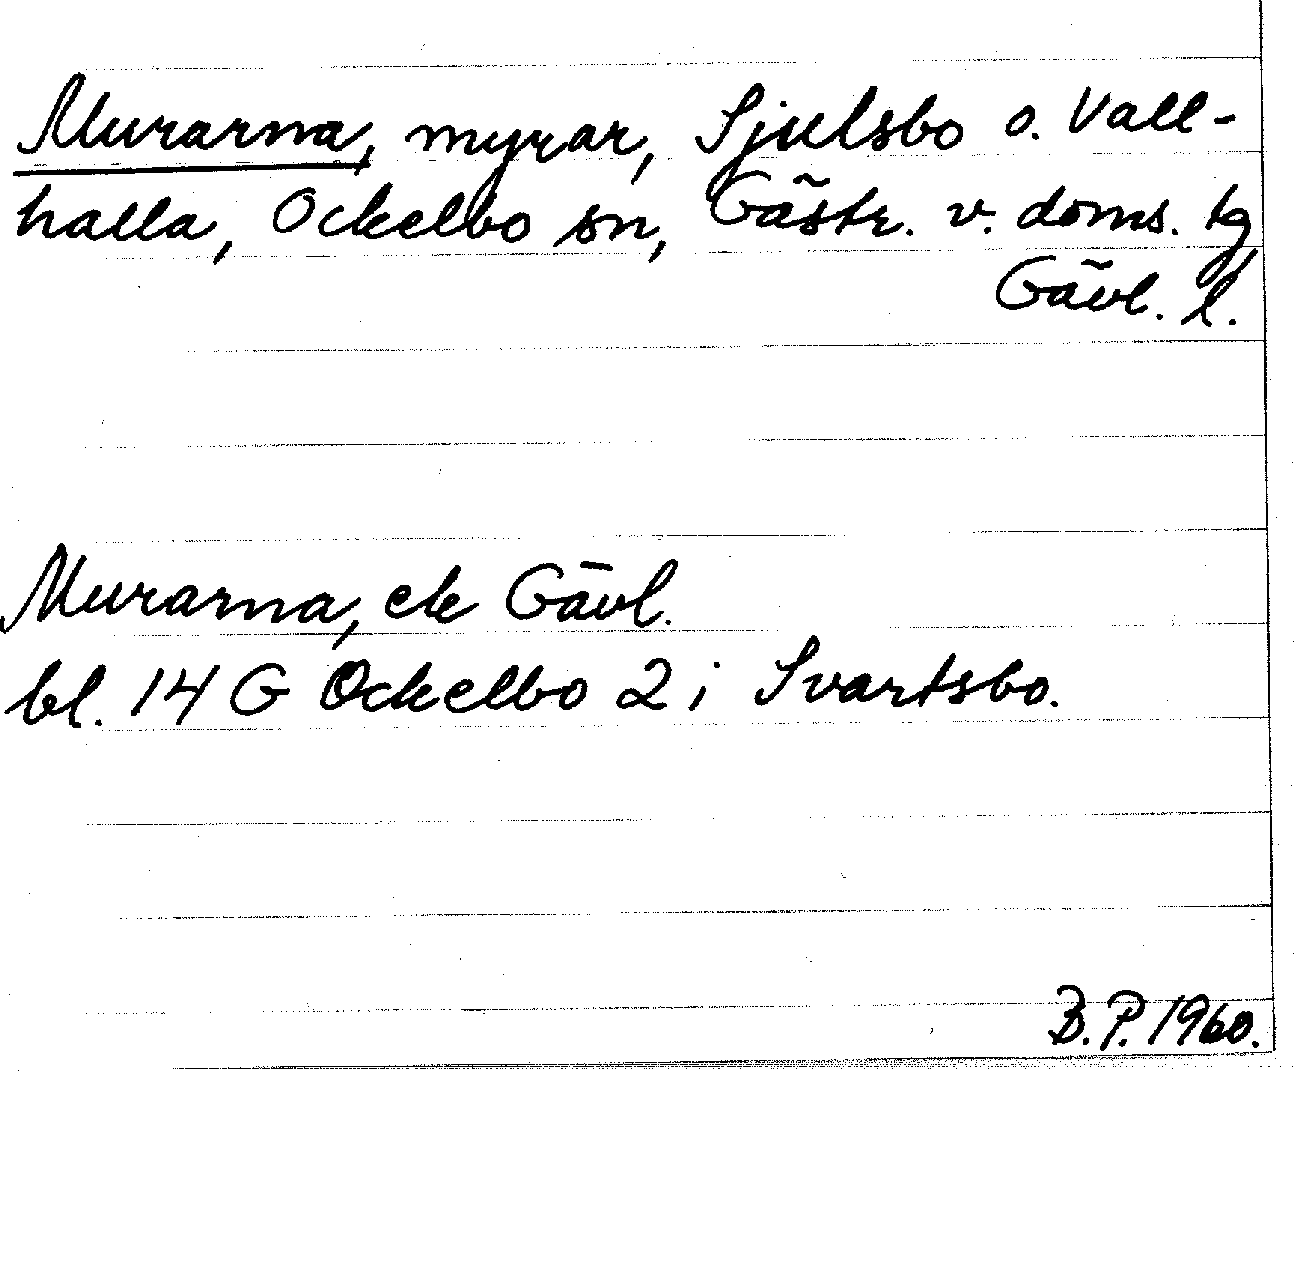 Murarna, myrar, Sjulsbo o. Vall-
halla, Ockelbo sn, Gästr. v. doms. tg
Gävl. l.
Murarna, ek Gävl.
bl. 14 G Ockelbo 2 i Svartsbo.
B.P. 1960.